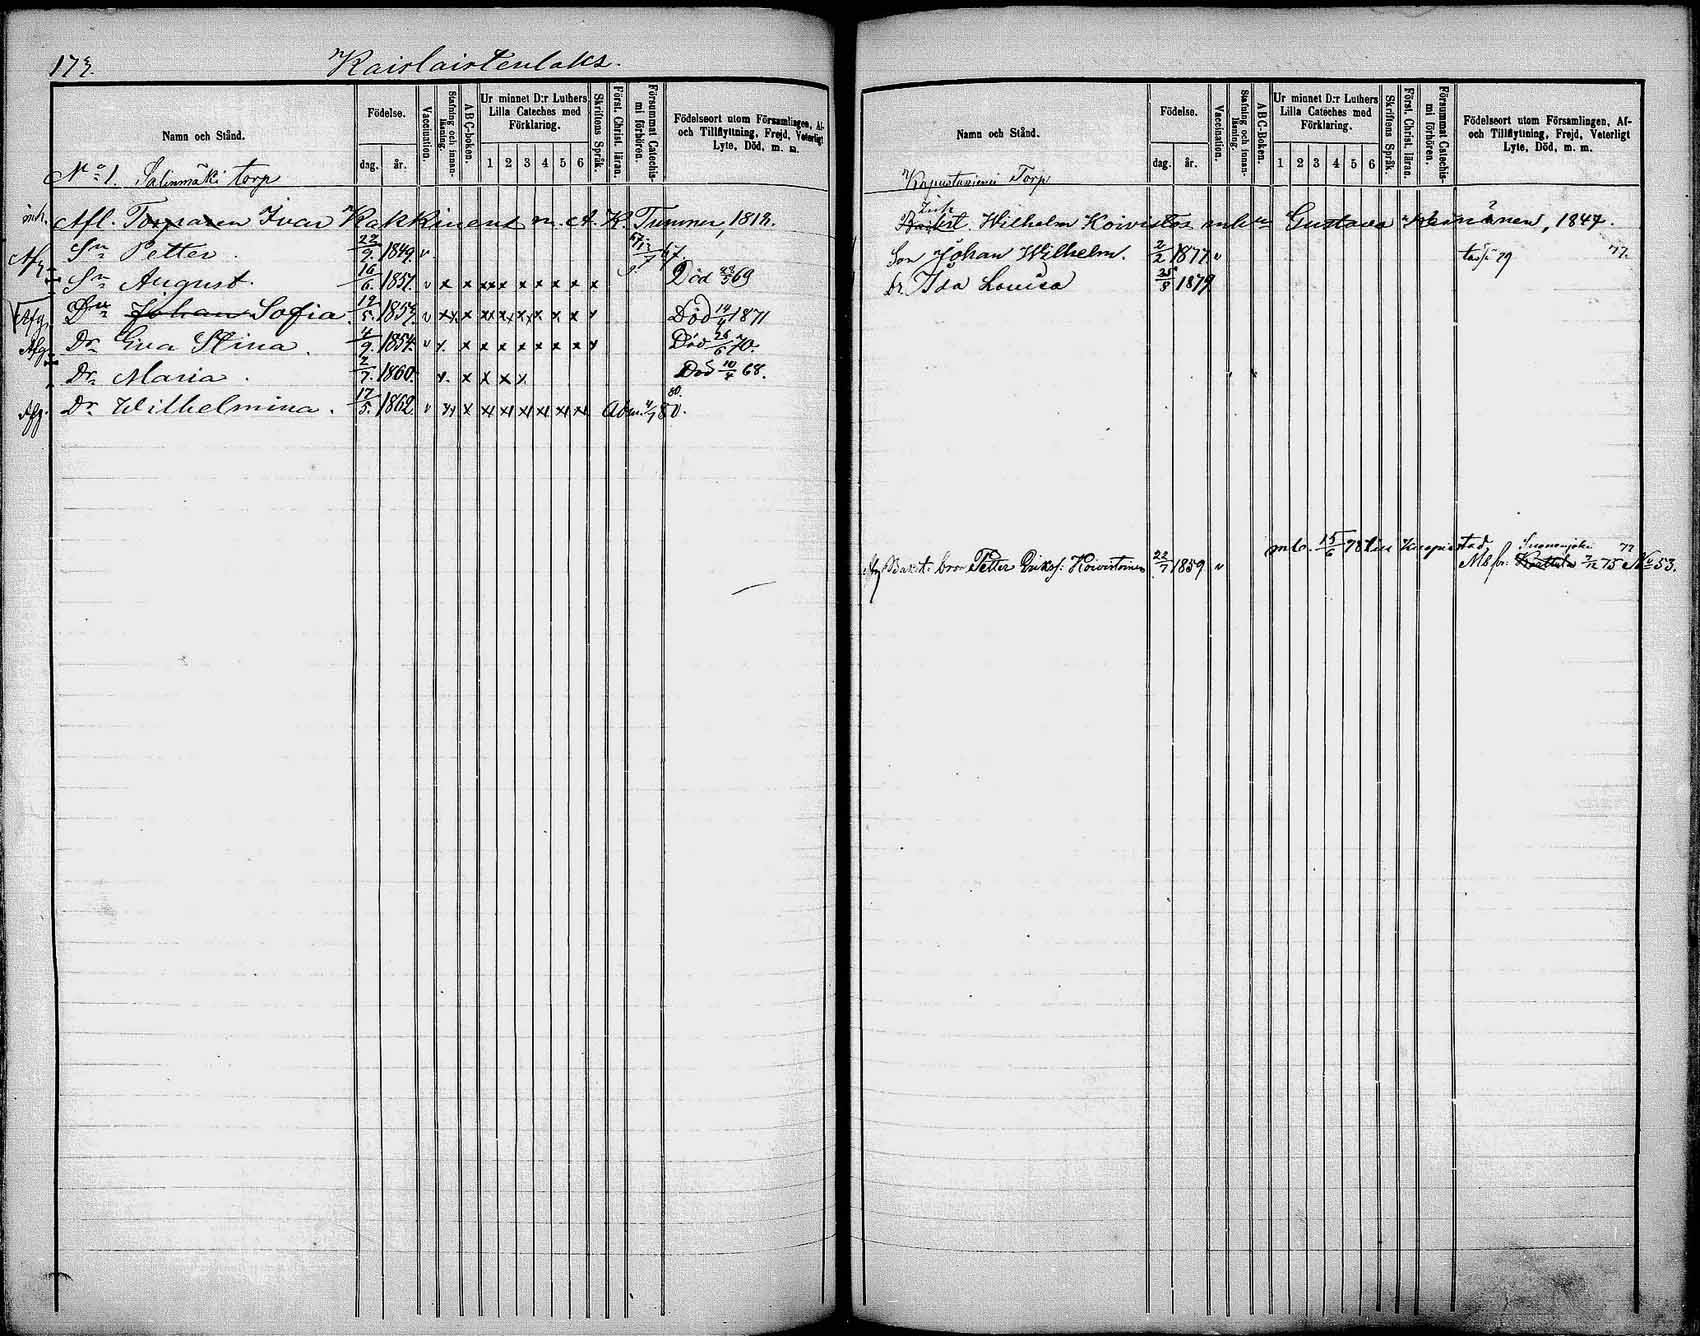 173.
Kaislaistenlaks.
Namn och Stånd.
Födelse.
dag. år.
Vaccination.
Stafning och innanläsning.
ABC-boken.
Ur minnet D:r Luthers Lilla Cateches med Förklaring.
1 2 3 4 5 6
Skriftens Språk.
Först. Christ. läran.
Försummat Catechismi förhören.
Födelseort utom Församlingen, Af- och Tillflyttning, Frejd, Veterligt Lyte, Död, m. m.
No 1. Salinmäki torp
Afl. Torparen Ivar Kakkinens m. A. K. Tummer, 1812.
Sn Petter. 22/9. 1849. v
Afg Sn August. 16/6. 1851. v x x xx x x x x x x Död 69
Afg. Dr Johan Sofia 19/5. 1852. v Död 1871
Afg Dr Eva Stina. 4/9. 1854. v Död 26/6 70.
Dr Maria. 2/7. 1860. x. x x x x Död 10/4 68.
Afg. Dr Wilhelmina. 17/5. 1862 v 80.
Namn och Stånd.
Födelse.
dag. år.
Vaccination.
Stafning och innanläsning.
ABC-boken.
Ur minnet D:r Luthers Lilla Cateches med Förklaring.
1 2 3 4 5 6
Skriftens Språk.
Först. Christ. läran.
Försummat Catechismi förhören.
Födelseort utom Församlingen, Af- och Tillflyttning, Frejd, Veterligt Lyte, Död, m. m.
Torp
Inh.
Wilhelm Koivistos Gustava 1847.
Son Johan Wilhelm. 2/2 1877. v 79 77.
Dr. Ida Lovisa 25/8 1879
mb. 15/6 78
Suonenjoki 77
Afg Petter Eriks. Koivistoinen 22/7 1859 v Mb fr. Karttula 7/12 75 No 53.